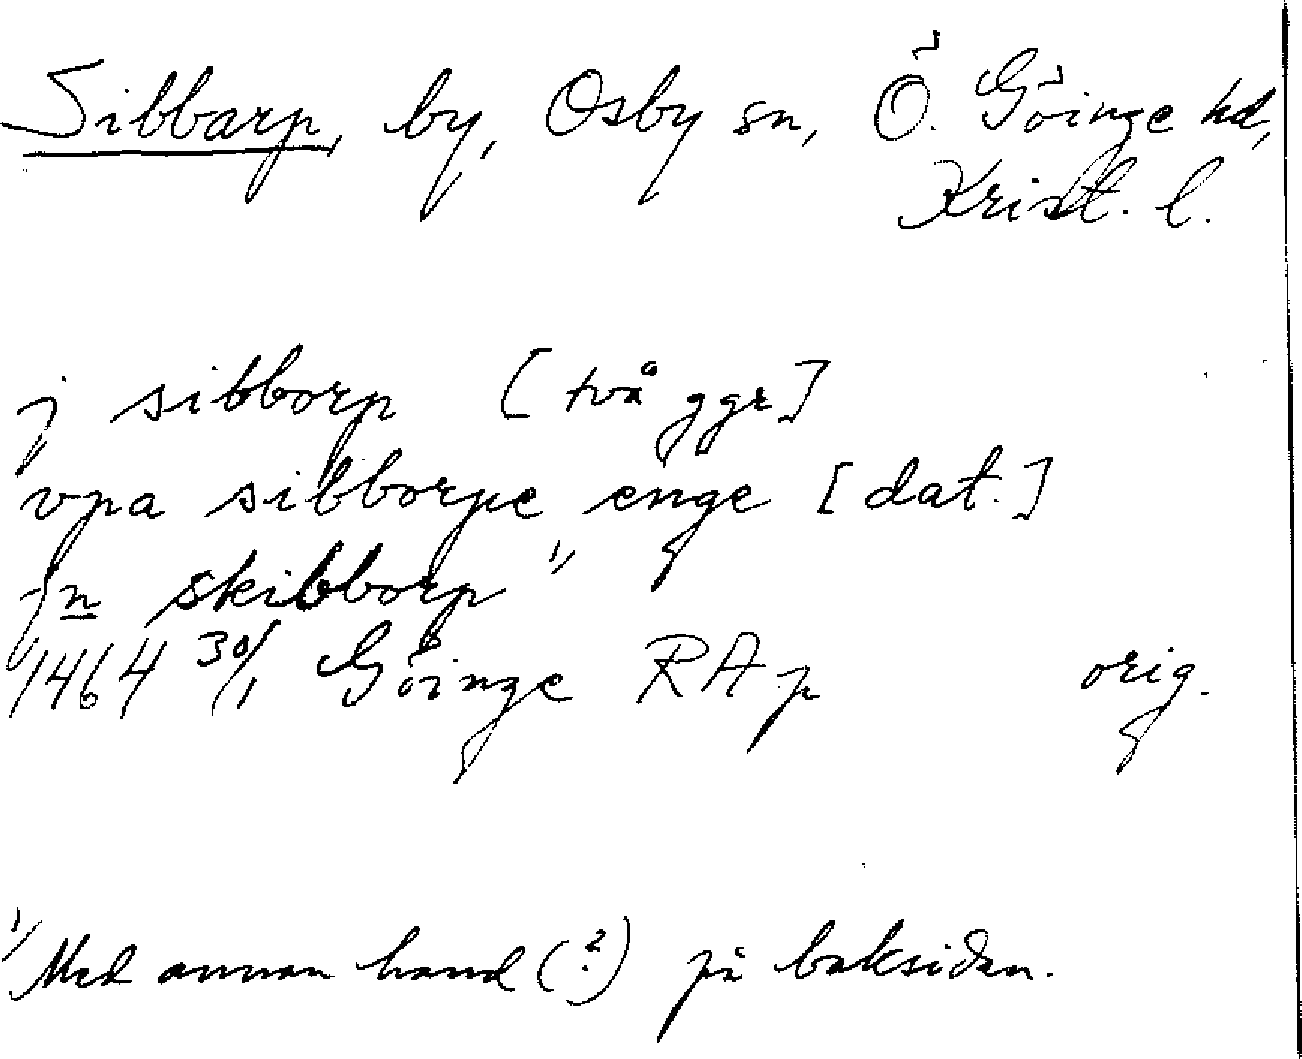 Sibbarp, by, Osby sn, Ö. Göinge hd,
Krist. l.
j sibborp [två ggr]
vpa sibborpe enge [dat.]
jn skibborp 1)
1464 30/1 Göinge RAp orig.
1) Med annan hand (?) på baksidan.